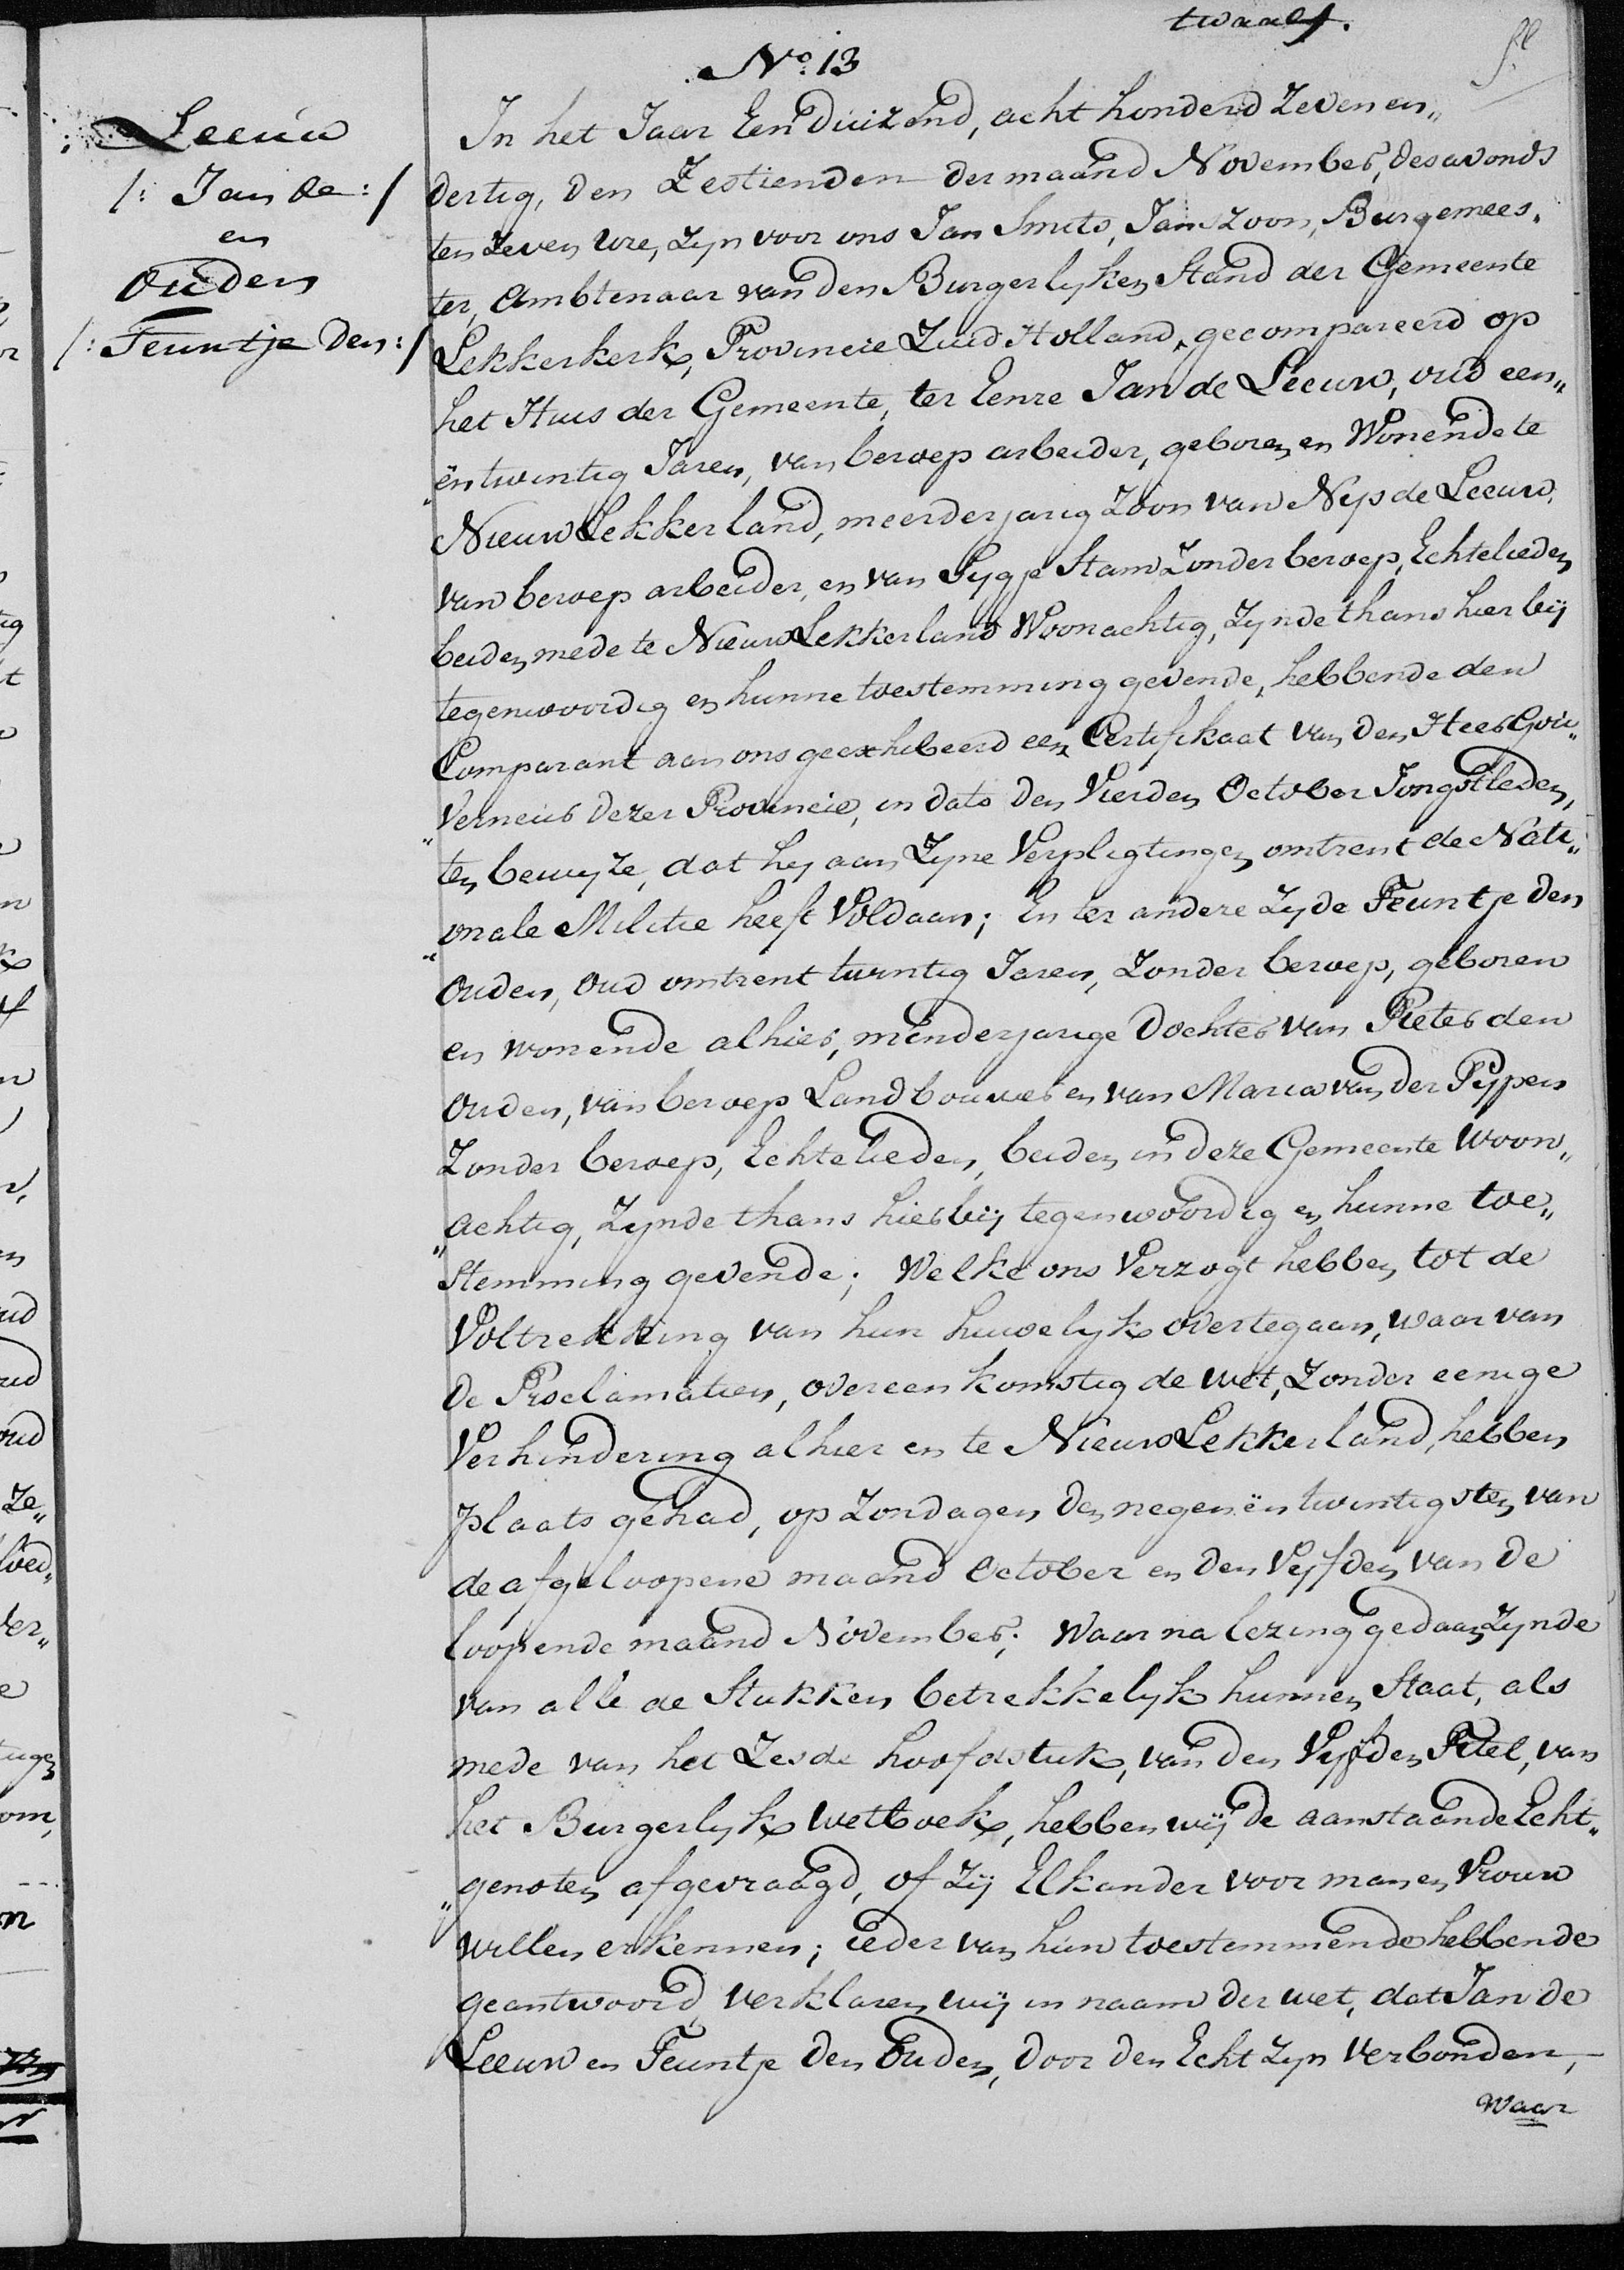 twaalf.
N.o 13
Leeuw
/: Jan de :/
en
Ouden
/: Teuntje den :/
In het Jaar Een duizend, acht honderd zeven en„
dertig, den Zestienden der maand November, des avonds
ten zeven ure, zyn voor ons Jan Smits, Janszoon, Burgemees„
ter, Ambtenaar van den Burgerlyken Stand der Gemeente
Lekkerkerk, Provincie Zuid Holland, gecompareerd op
het Huis der Gemeente, ter Eenre Jan de Leeuw, oud een„
„ëntwintig Jaren, van beroep arbeider, geboren en Wonende te
Nieuw Lekkerland, meerderjarig Zoon van Nys de Leeuw,
van beroep arbeider, en van Sygje Stam Zonder beroep, Echtelieden
beiden mede te Nieuw Lekkerland Woonachtig, Zynde thans hier bÿ
tegenwoordig en hunne toestemming gevende, hebbende den
Comparant aan ons geexhibeerd een Certifikaat van den Heer Gou„
„verneur dezer Provincie, in dato den Vierden October Jongstleden,
ten bewyze, dat hy aan Zyne Verpligtingen omtrent de Nati„
„onale Militie heeft Voldaan; En ter andere Zyde Teuntje den
Ouden, Oud omtrent twintig Jaren, Zonder beroep, geboren
en wonende alhier, minderjarige Dochter van Pieter den
Ouden, van beroep Landbouwer en van Maria van der Pypen
Zonder beroep, Echtelieden, beiden in deze Gemeente Woon„
„achtig, Zynde thans hierbÿ tegenwoordig en hunne toe„
Stemming gevende; Welke ons Verzogt hebben tot de
Voltrekking van hun huwelyk overtegaan, waar van
de Proclamatien, overeenkomstig de wet, Zonder eenige
Verhindering alhier en te Nieuw Lekkerland, hebben
plaats gehad, op Zondagen den negenëntwintigsten van
de afgeloopene maand October en den Vyfden van de
loopende maand November; Waar na lezing gedaan Zynde
van alle de Stukken betrekkelyk hunnen Staat, als
mede van het Zesde hoofdstuk, van den Vyfden Titel, van
het Burgerlyk Wetboek, hebben wÿ de aanstaande Echt„
„genoten afgevraagd, of Zÿ Elkander voor man en Vrouw
willen erkennen; ieder van hun toestemmende hebbende
geantwoord, verklaren wÿ in naam der wet, dat Jan de
Leeuw en Teuntje den Ouden, door den Echt Zyn Verbonden,
waar